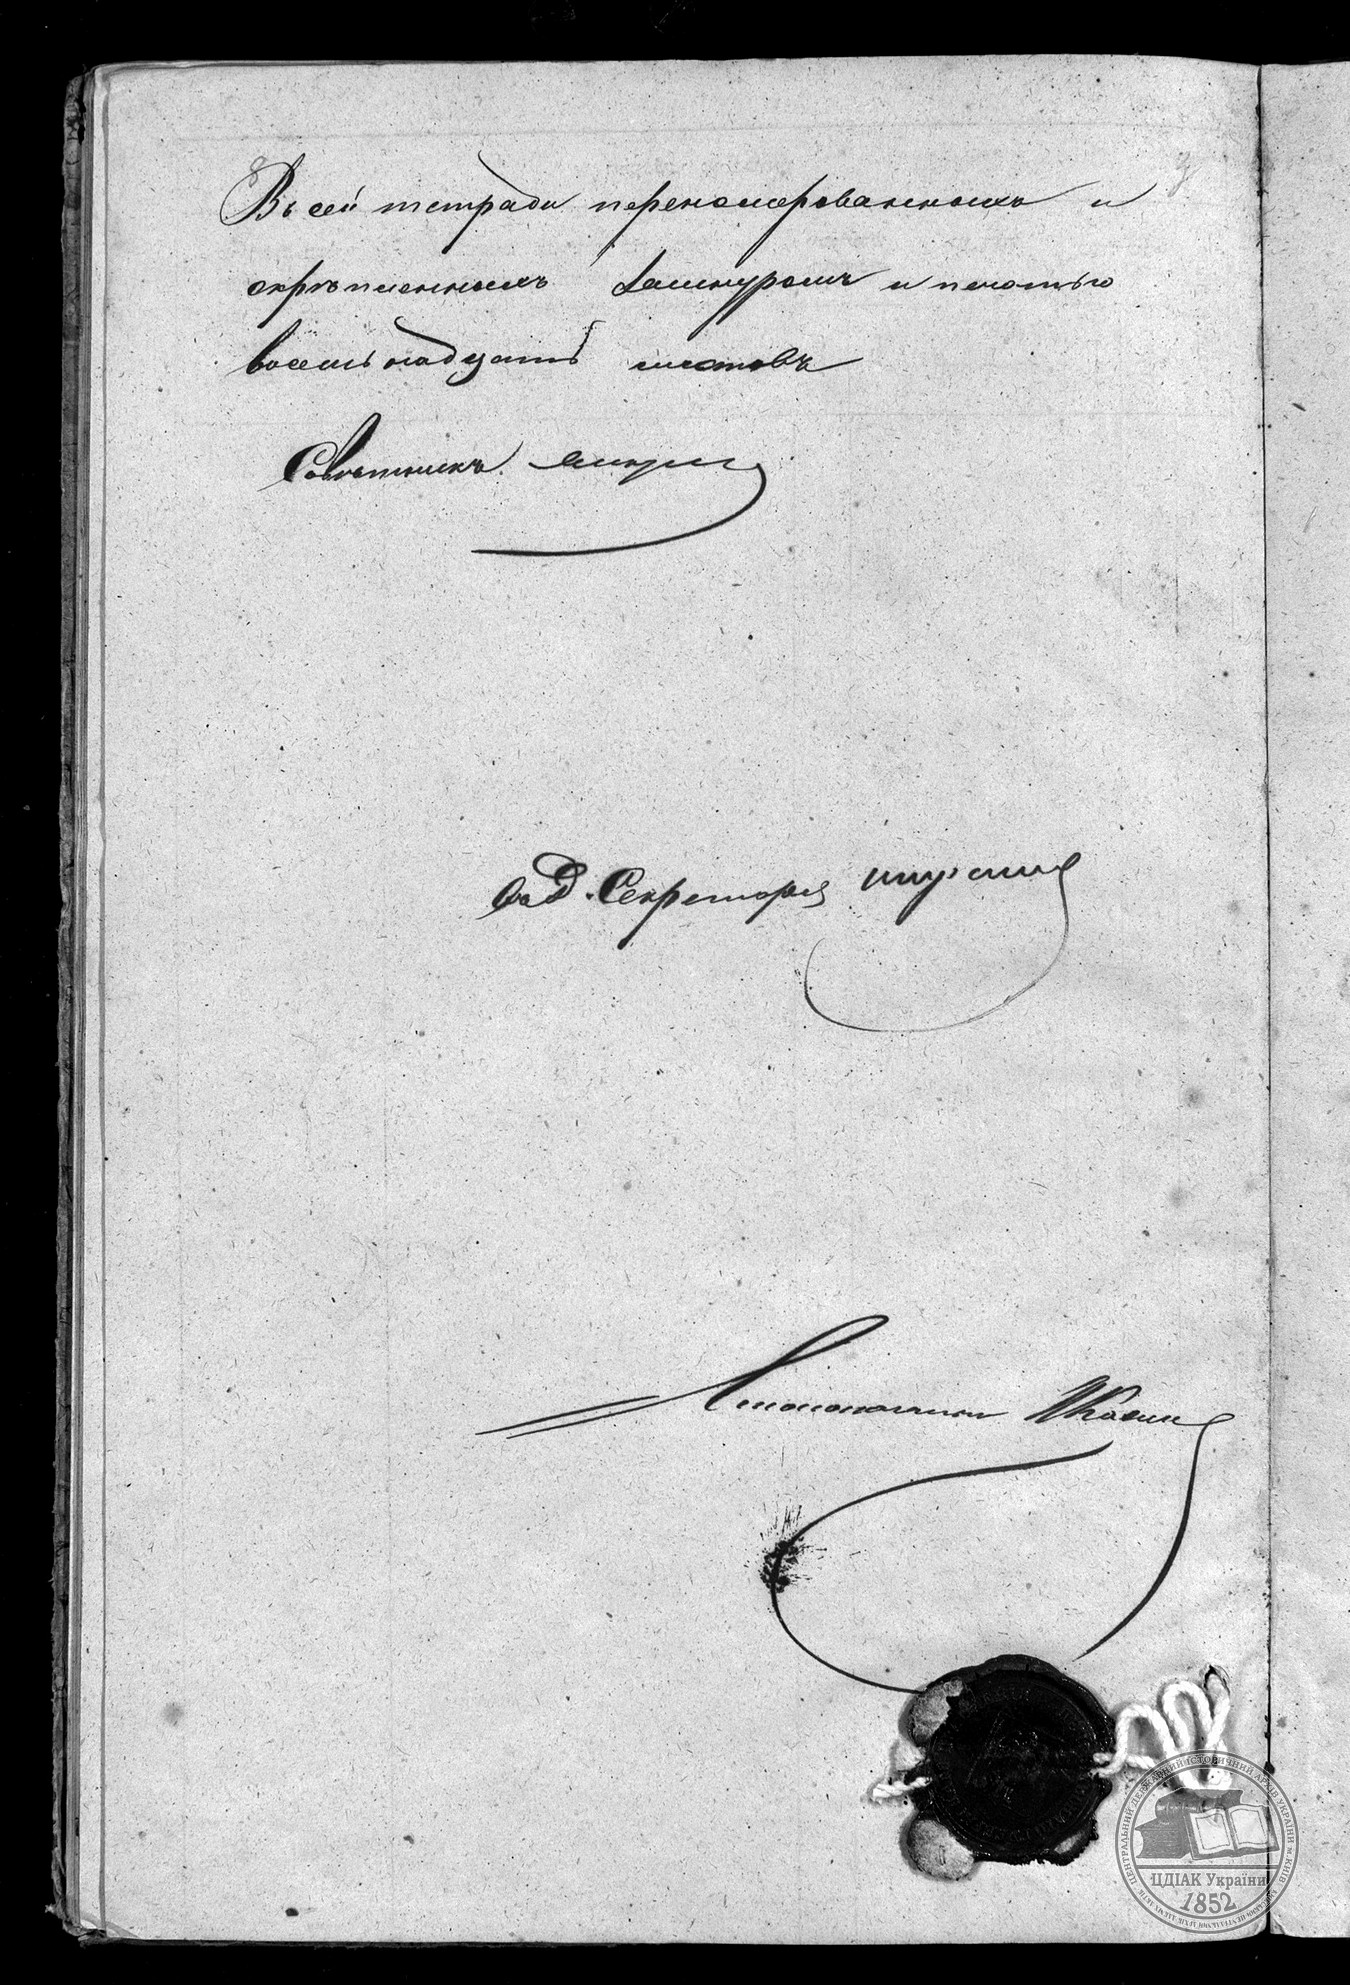 Въ сей тетради переномерованныхъ и
скрѣпленныхъ зашнуромъ и печатью
восемьнадцать листовъ
Совѣтникъ
За Д. Секретаря
Столоначальникъ
ЦЕНТРАЛЬНИЙ ДЕРЖАВНИЙ ІСТОРИЧНИЙ АРХІВ УКРАЇНИ М. КИЇВ
ЦДІАК України
1852